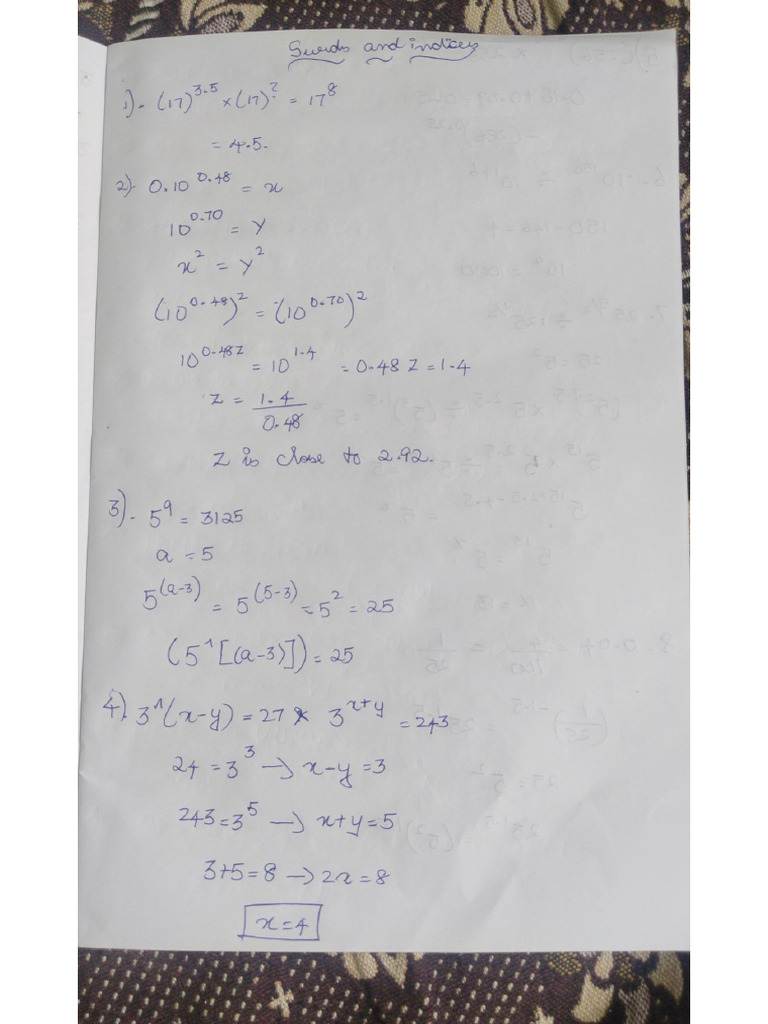 Surds and indices
1)- (17)^3.5 × (17)^? = 17^8
= 4.5.
2)- 0.10^0.48 = x
10^0.70 = y
x^2 = y^2
(10^0.48)^2 = (10^0.70)^2
10^0.48z = 10^1.4 = 0.48 z = 1.4
z = 1.4/0.48
z is close to 2.92.
3)- 5^a = 3125
a = 5
5^(a-3) = 5^(5-3) = 5^2 = 25
(5^[(a-3)]) = 25
4). 3^(x-y) = 27 & 3^x+y = 243
24 = 3^3 → x-y = 3
243 = 3^5 → x+y = 5
3+5 = 8 → 2x = 8
x = 4